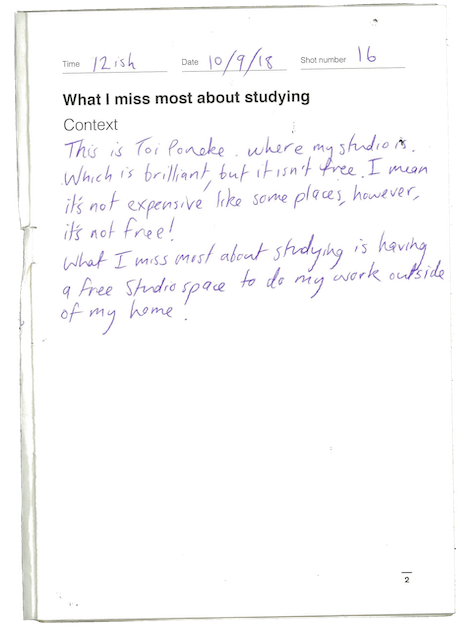 Time 12ish Date 10/9/18 Shot number 16
What I miss most about studying
Context
This is Toi Poneke. where my studio is.
Which is brilliant, but it isn't free. I mean
it's not expensive like some places, however,
it's not free!
What I miss most about studying is having
a free studio space to do my work outside
of my home.
2